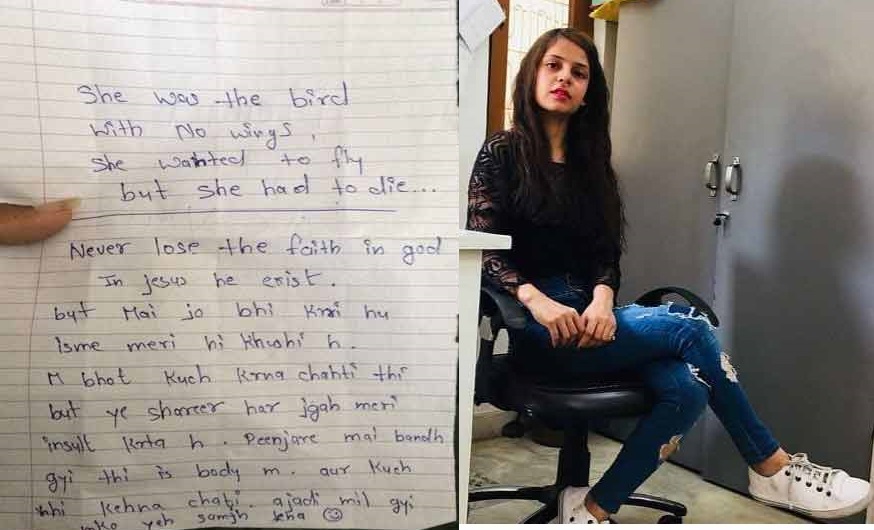 She was the bird
with No wings,
She wanted to fly
but she had to die...
Never lose the faith in god
In jesus he exist.
but Mai jo bhi krri hu
Isme meri hi khushi h.
M bhot kuch krna chahti thi
but ye shareer har jgah meri
insult krta h. Peenjare mai bandh
gyi thi is body m. aur kuch
nhi kehna chahti. ajadi mil gyi
mko yeh samjh lena ☺